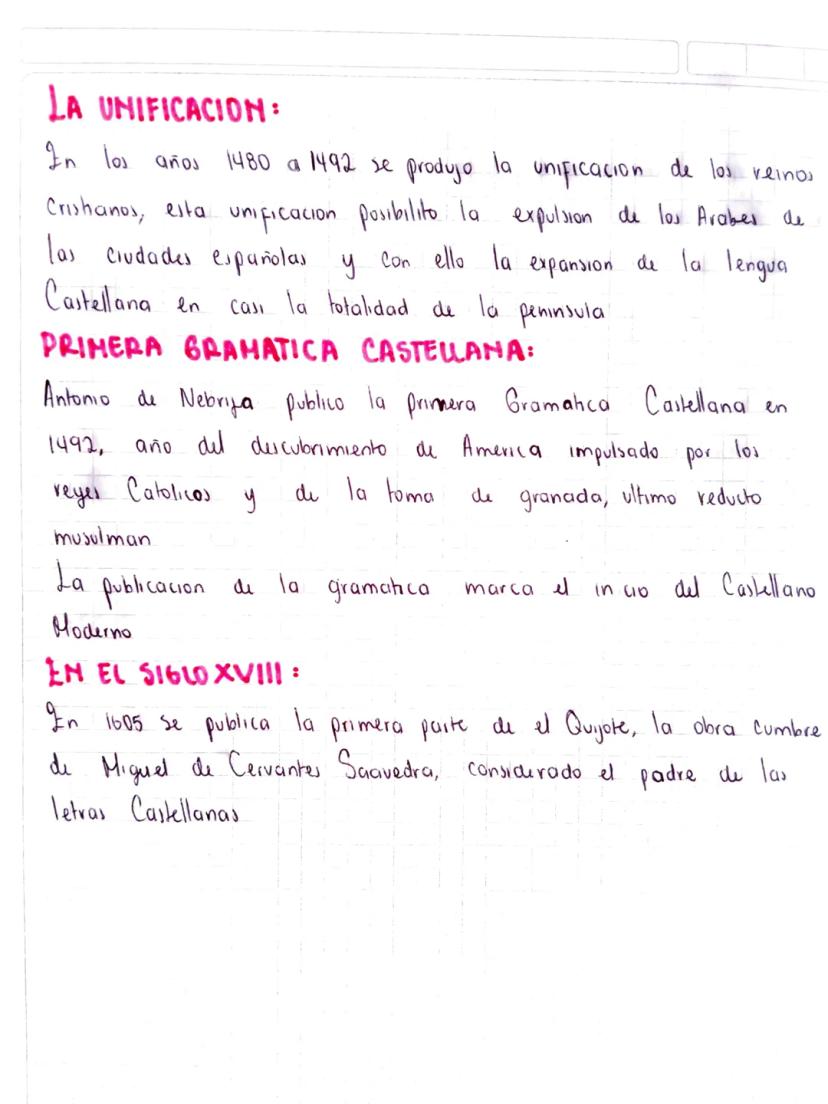 LA UNIFICACION:
En los años 1480 a 1492 se produjo la unificacion de los reinos
Cristianos, esta unificacion posibilito la expulsion de los Arabes de
las ciudades españolas y con ello la expansion de la lengua
Castellana en casi la totalidad de la peninsula
PRIMERA GRAMATICA CASTELLANA:
Antonio de Nebrija publico la primera Gramatica Castellana en
1492, año del descubrimiento de America impulsado por los
reyes Catolicos y de la toma de granada, ultimo reducto
musulman
La publicacion de la gramatica marca el inicio del Castellano
Moderno
EN EL SIGLO XVIII:
En 1605 se publica la primera parte de el Quijote, la obra cumbre
de Miguel de Cervantes Saavedra, considerado el padre de las
letras Castellanas